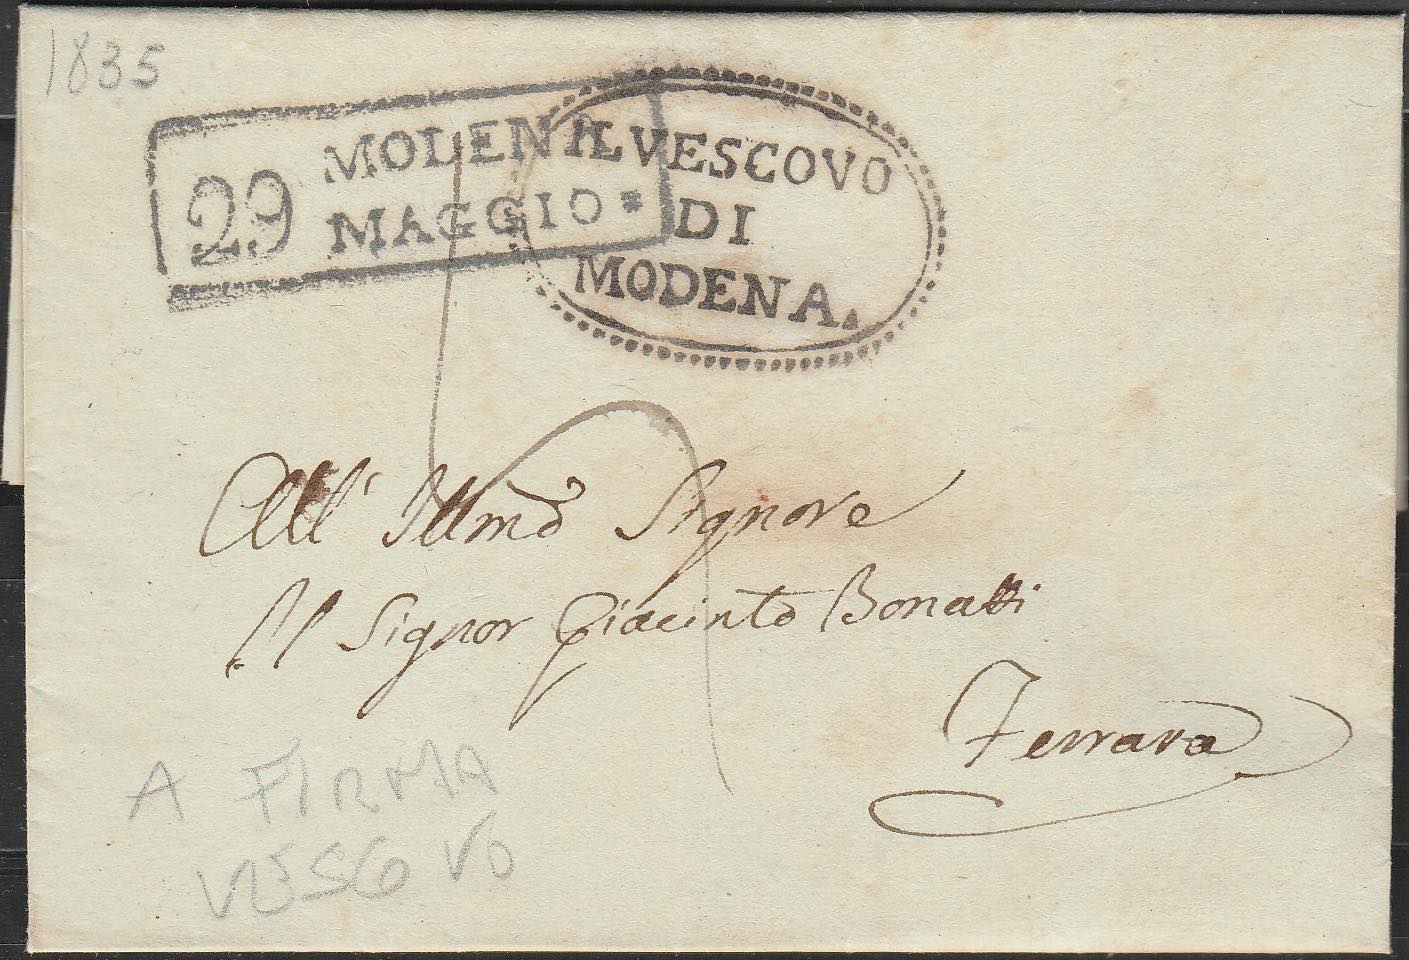 1835
29
MODENA
MAGGIO *
IL VESCOVO
DI
MODENA.
All' Illmo Signore
Il Signor Giacinto Bonatti
Ferrara
A FIRMA
VESCOVO